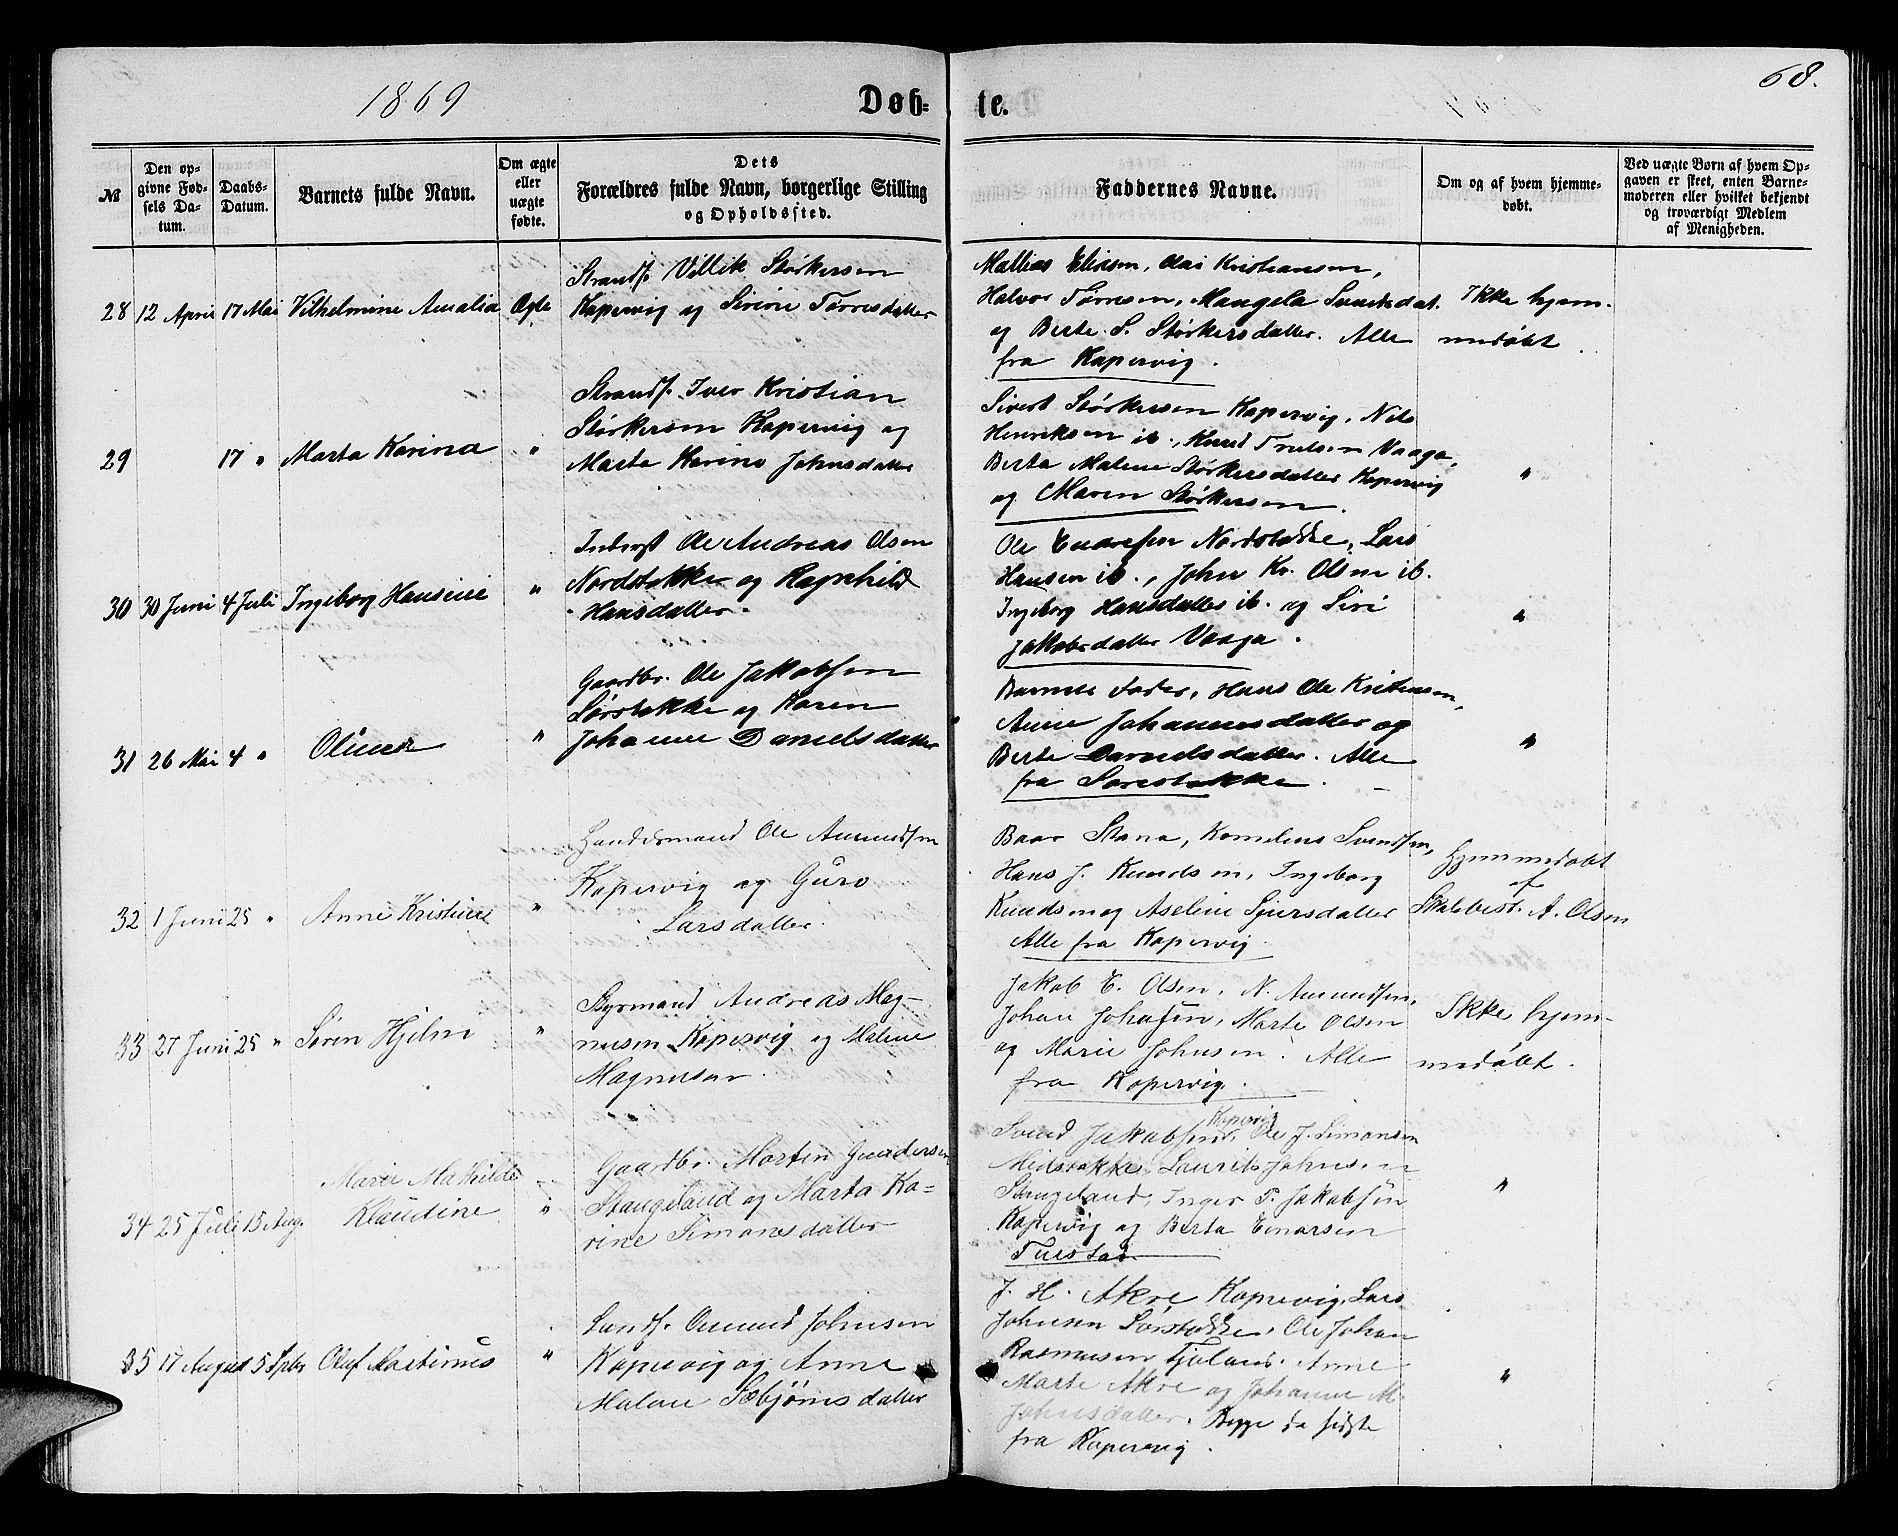 1869
Døb-
te.
68.
№
Den op-
givne Fød-
sels Da-
tum.
Daabs-
Datum.
Barnets fulde Navn.
Om ægte
eller
uægte
fødte.
Dets
Forældres fulde Navn, borgerlige Stilling
og Opholdssted.
Faddernes Navne.
Om og af hvem hjemme-
døbt.
Ved uægte Børn af hvem Op-
gaven er skeet, enten Barne-
moderen eller hvilket bekjendt
og troværdigt Medlem
af Menigheden.
28 12 April 17 Mai Vilhelmine Amalia Ægte
Strandf. Villik Størkersen
Kopervig og Sirine Tørresdatter
Mathias Eliasen, Kristiansen,
Halvor Tørresen, Mangela Svendsdat.
og Berte S. Størkersdatter. Alle
fra Kopervig.
Ikke hjem-
medøbt.
29 17 " Marta Karina "
Strandf. Iver Kristian
Størkersen Kopervig og
Marta Karine Johnsdatter
Sivert Størkersen Kopervig, Nils
Henriksen ib., Knud Truelsen Vaaga,
Berta Malene Størkersdatter Kopervig
og Maren Størkersen.
"
30 30 Juni 4 Juli Ingeborg Hansine "
Inderst Ole Andreas Olsen
Nordstokke og Ragnhild
Hansdatter.
Ole Endresen Nordstokke, Lars
Hansen ib., John Kr. Olsen ib.
Ingeborg Hansdatter ib. og Siri
Jakobsdatter Vaaga.
"
31 26 Mai 4 " Olines "
Gaardbr. Ole Jakobsen
Sørstokke og Karen
Johanne Danielsdatter
Barnets Fader, Hans Ole Kristensen,
Anne Johannesdatter og
Berte Danielsdatter. Alle
fra Sørestokke.
"
32 1 Juni 25 " Anne Kristine "
Handelsmand Ole Amundsen
Kopervig og Guro
Larsdatter.
Baar Stana, Kornelius Svendsen,
Hans J. Knudsen, Ingeborg
Knudsen og Aseline Sjursdatter
Alle fra Kopervig.
Hjemmedøbt
af
A. Olsen
33 27 Juni 25 " Søren Hjelm "
Styrmand Andreas Mag-
nusen Kopervig og Malene
Magnusen.
Jakob E. Olsen, N. Amundsen,
Johan Johnsen, Marte Olsen
og Marie Johnsen. Alle
fra Kopervig.
Ikke hjem-
medøbt.
34 25 Juli 15 Aug. Marie Mathilde
Klaudine "
Gaardbr. Morten Gundersen
Stangeland og Marta Ka-
rine Simonsdatter
Kopervig
Svend Jakobsen, Ole J. Simonsen
Midstokke, Laurits Johnsen
Stangeland, Inger T. Jakobsen
Kopervig og Berta Einarsen
"
35 17 August 5 Sptbr Oluf Martinus "
Landh. Omund Johnsen
Kopervig og Anne
Malene Sæbjørnsdatter
J. H. Akre Kopervig, Lars
Johnsen Sørstokke, Ole Johan
Rasmusen Fjeland. Anne
Marte Akre og Johanne M.
Johnsdatter. Begge de sidste
fra Kopervig.
"